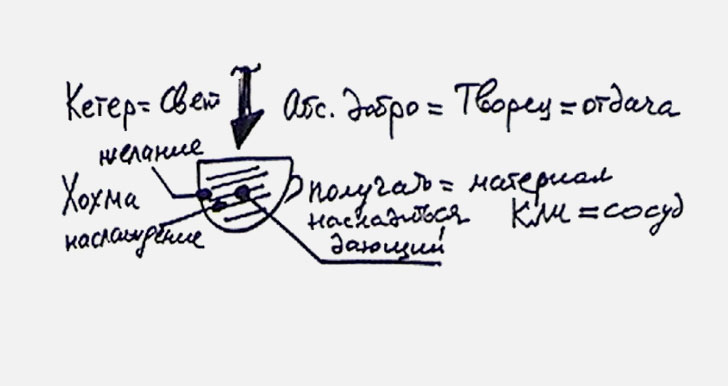 Кетер = Свет Абс. добро = Творец = отдача
желание
Хохма получать = материал
насладиться кли = сосуд
наслаждение дающий